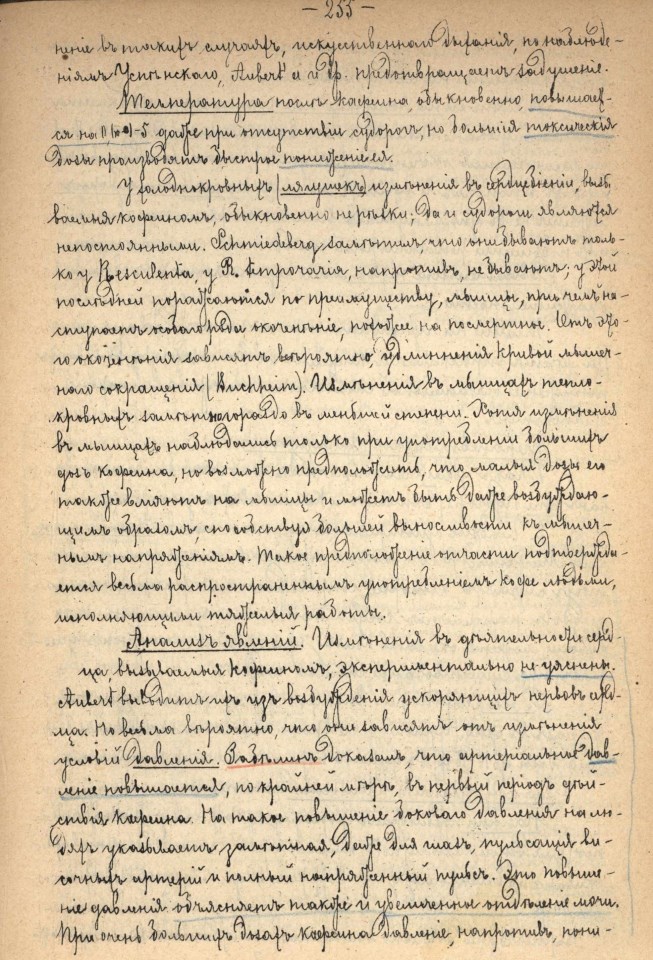 — 255 —
неніе въ такихъ случаяхъ, искусственнаго дыханія, по наблюде-
ніямъ Успенскаго, Aubert'а и др. предотвращаетъ задушеніе.
Температура послѣ кофеина, обыкновенно, повышает-
ся на -5 даже при отсутствіи судорогъ, но большія токсическія
дозы производятъ быстрое пониженіе ея.
У холоднокровныхъ (лягушекъ) измѣненія въ сердцебіеніи, вызы-
ваемыя кофеиномъ, обыкновенно не рѣзки; да и судороги являются
непостоянными. Schmiedeberg замѣтилъ что они бываютъ толь-
ко у R. esculenta, у R. temporaria, напротивъ, не бываютъ; у этой
послѣдней поражаются по преимуществу, мышцы, при чемъ на-
ступаетъ особаго рода окоченѣніе, похожее на посмертное. Отъ это-
го окоченѣнія зависятъ вѣроятно, удлиненія кривой мышеч-
наго сокращенія (Buchheim). Измѣненія въ мышцахъ тепло-
кровныхъ замѣтны гораздо въ меньшей степени. Хотя измѣненія
въ мышцахъ наблюдались только при употребленіи большихъ
дозъ кофеина, но возможно предположить, что малыя дозы его
также вліяютъ на мышцы и можетъ быть даже возбуждаю-
щимъ образомъ, способствуя большей выносливости къ мышеч-
нымъ напряженіямъ. Такое предположеніе отчасти подтвержда-
ется весьма распространеннымъ употребленіемъ кофе людьми,
исполняющими тяжелыя работы.
Анализъ явленій. Измѣненія въ дѣятельности серд-
ца, вызываемыя кофеиномъ, экспериментально не уяснены.
Aubert выводитъ ихъ изъ возбужденія ускоряющихъ нервовъ серд-
ца. Но весьма вѣроятно, что они зависятъ отъ измѣненія
условій давленія. доказалъ, что артеріальное дав-
леніе повышается, по крайней мѣрѣ, въ первый періодъ дѣй-
ствія кофеина. На такое повышеніе боковаго давленія на лю-
дяхъ указываетъ замѣтная, даже для глазъ, пульсація ви-
сочныхъ артерій и полный напряженный пульсъ. Это повыше-
ніе давленія объясняетъ также и увеличенное отдѣленіе мочи.
При очень большихъ дозахъ кофеина давленіе, напротивъ, пони-